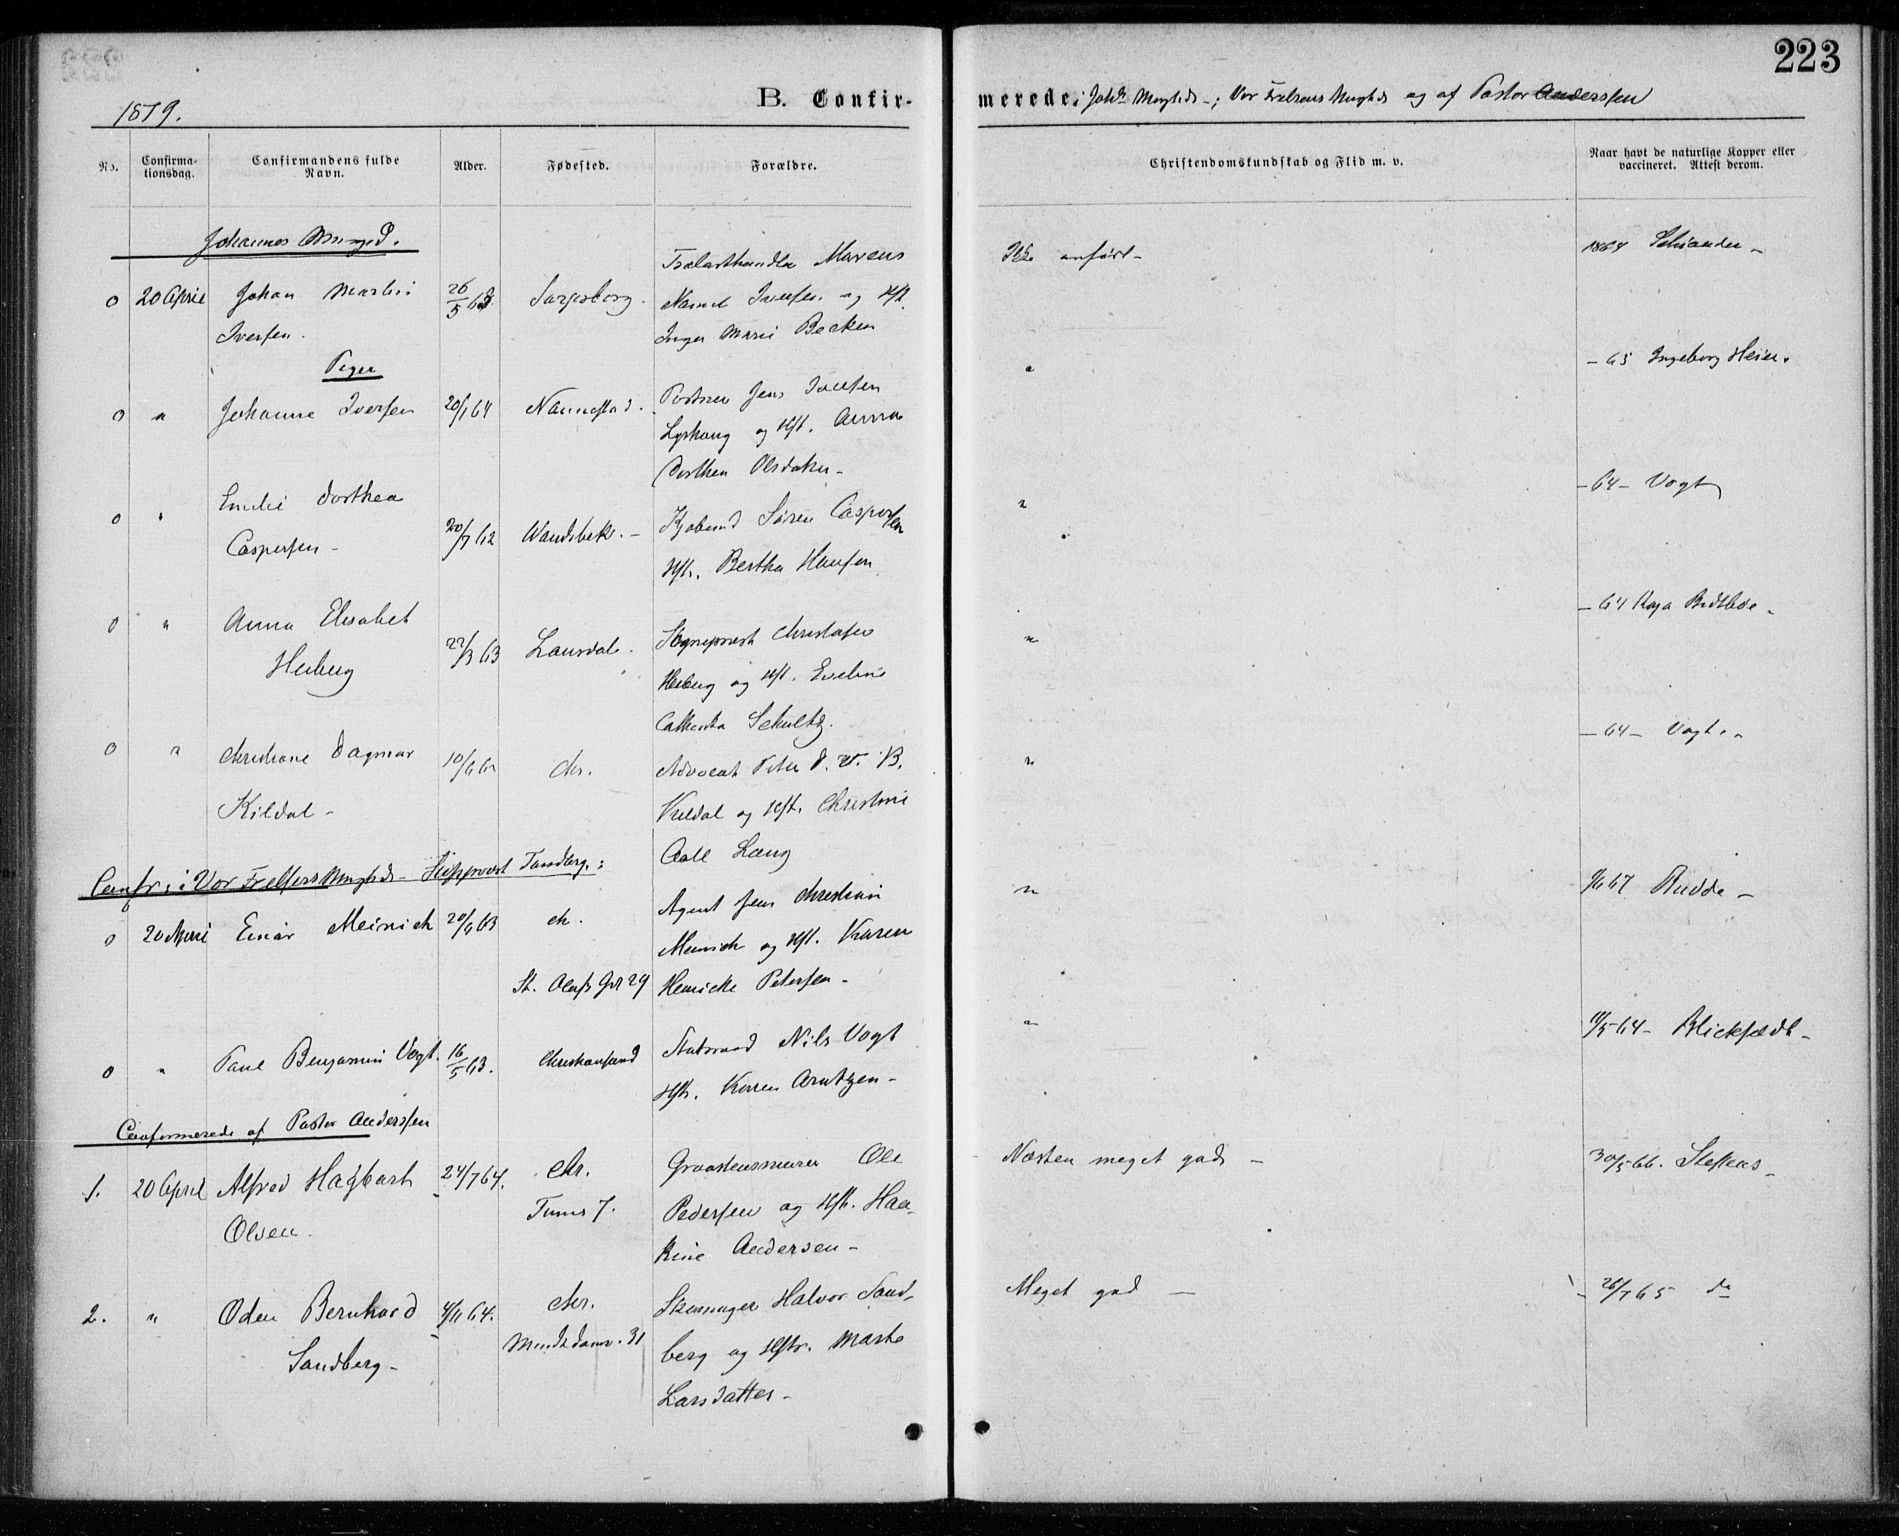 223
1879.
B. Confir-
merede i Johs Menighed -; Vor Frelsers Menighed og af Pastor Anderssen
No.
Confirma-
tionsdag.
Confirmandens fulde
Navn.
Alder.
Fødested.
Forældre.
Christendomskundskab og Flid m. v.
Naar havt de naturlige Kopper eller
vaccineret. Attest derom.
Johannes Menighed.
0 20 April Johan Martin
Iversen.
26/5 63 Sarpsborg.
Marcus
Iversen og Hst.
Inger Marie Becken
Ikke anført -
1864
Piger
0 " Johanne Iversen 20/1 64 Nannestad.
Portner Jens Iversen
og Hst. Anna
Dorthea Olsdatter -
"
- 65 Ingeborg Heier.
0 " Emilie Dorthea
Caspersen -
20/7 62 Wandsbek. -
Kjøbmd Søren Caspersen
Hst. Bertha Hansen
"
- 64 - Vogt
0 " Anna Elisabet
Heiberg
22/3 63
Sogneprest Christofer
Heiberg og Hst. Eveline
Schultz.
"
- 64
0 " Christiane Dagmar
Kildal -
Chr.
Advocat Peter
Kildal og Hst. Christine
Aall Lang
"
- 64 - Vogt. "
Confr. i Vor Frelsers Menighed - Stiftsprovst Tandberg:
0 20 April Einar Meinich 20/4 63 Chr.
St. Olafs Gd 29
Agent Jens Christian
Meinich og Hst. Karen
Henricke Petersen -
"
67 Budde -
0 " Paul Benjamin Vogt. 16/5 63. Christiansand
Statsraad Nils Vogt
Hst. Karen Arntzen -
"
11/5 64 - Blickfeldt -
Confirmerede af Pastor Anderssen
1. 20 April Alfred Hagbart
Olsen.
24/7 64. Chr.
Tunes 7.
Graastensmurer Ole
Pedersen og Hst. Haa-
kine Andersen -
Næsten meget god -
30/5 66. Steffens -
2. " Oden Bernhard
Sandberg -
4/11 64. Chr.
31
Skomager Halvor Sand-
berg og Hstr. Marte
Larsdatter -
Meget god -
- 26/7 65 do